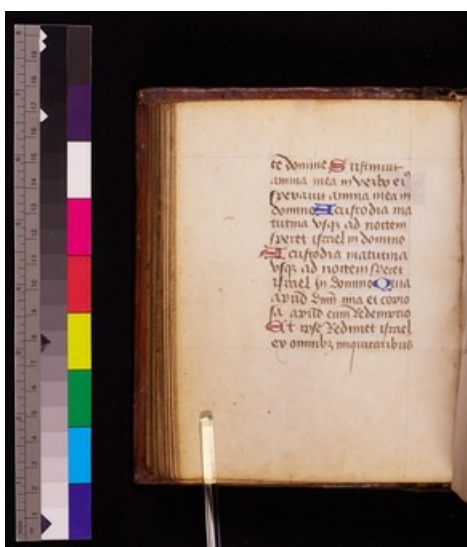 te domine Sustinuit
anima mea in verbo ei⁹
speravit anima mea in
domino A custodia ma
tutina vsqz ad noctem
speret israel in domino
A custodia matutina
vsqz ad noctem speret
israel in domino Quia
apud dnm mia ei copio
sa apud eum Redemptio
Et ipse Redimet israel
ex omnibz iniquitatibus